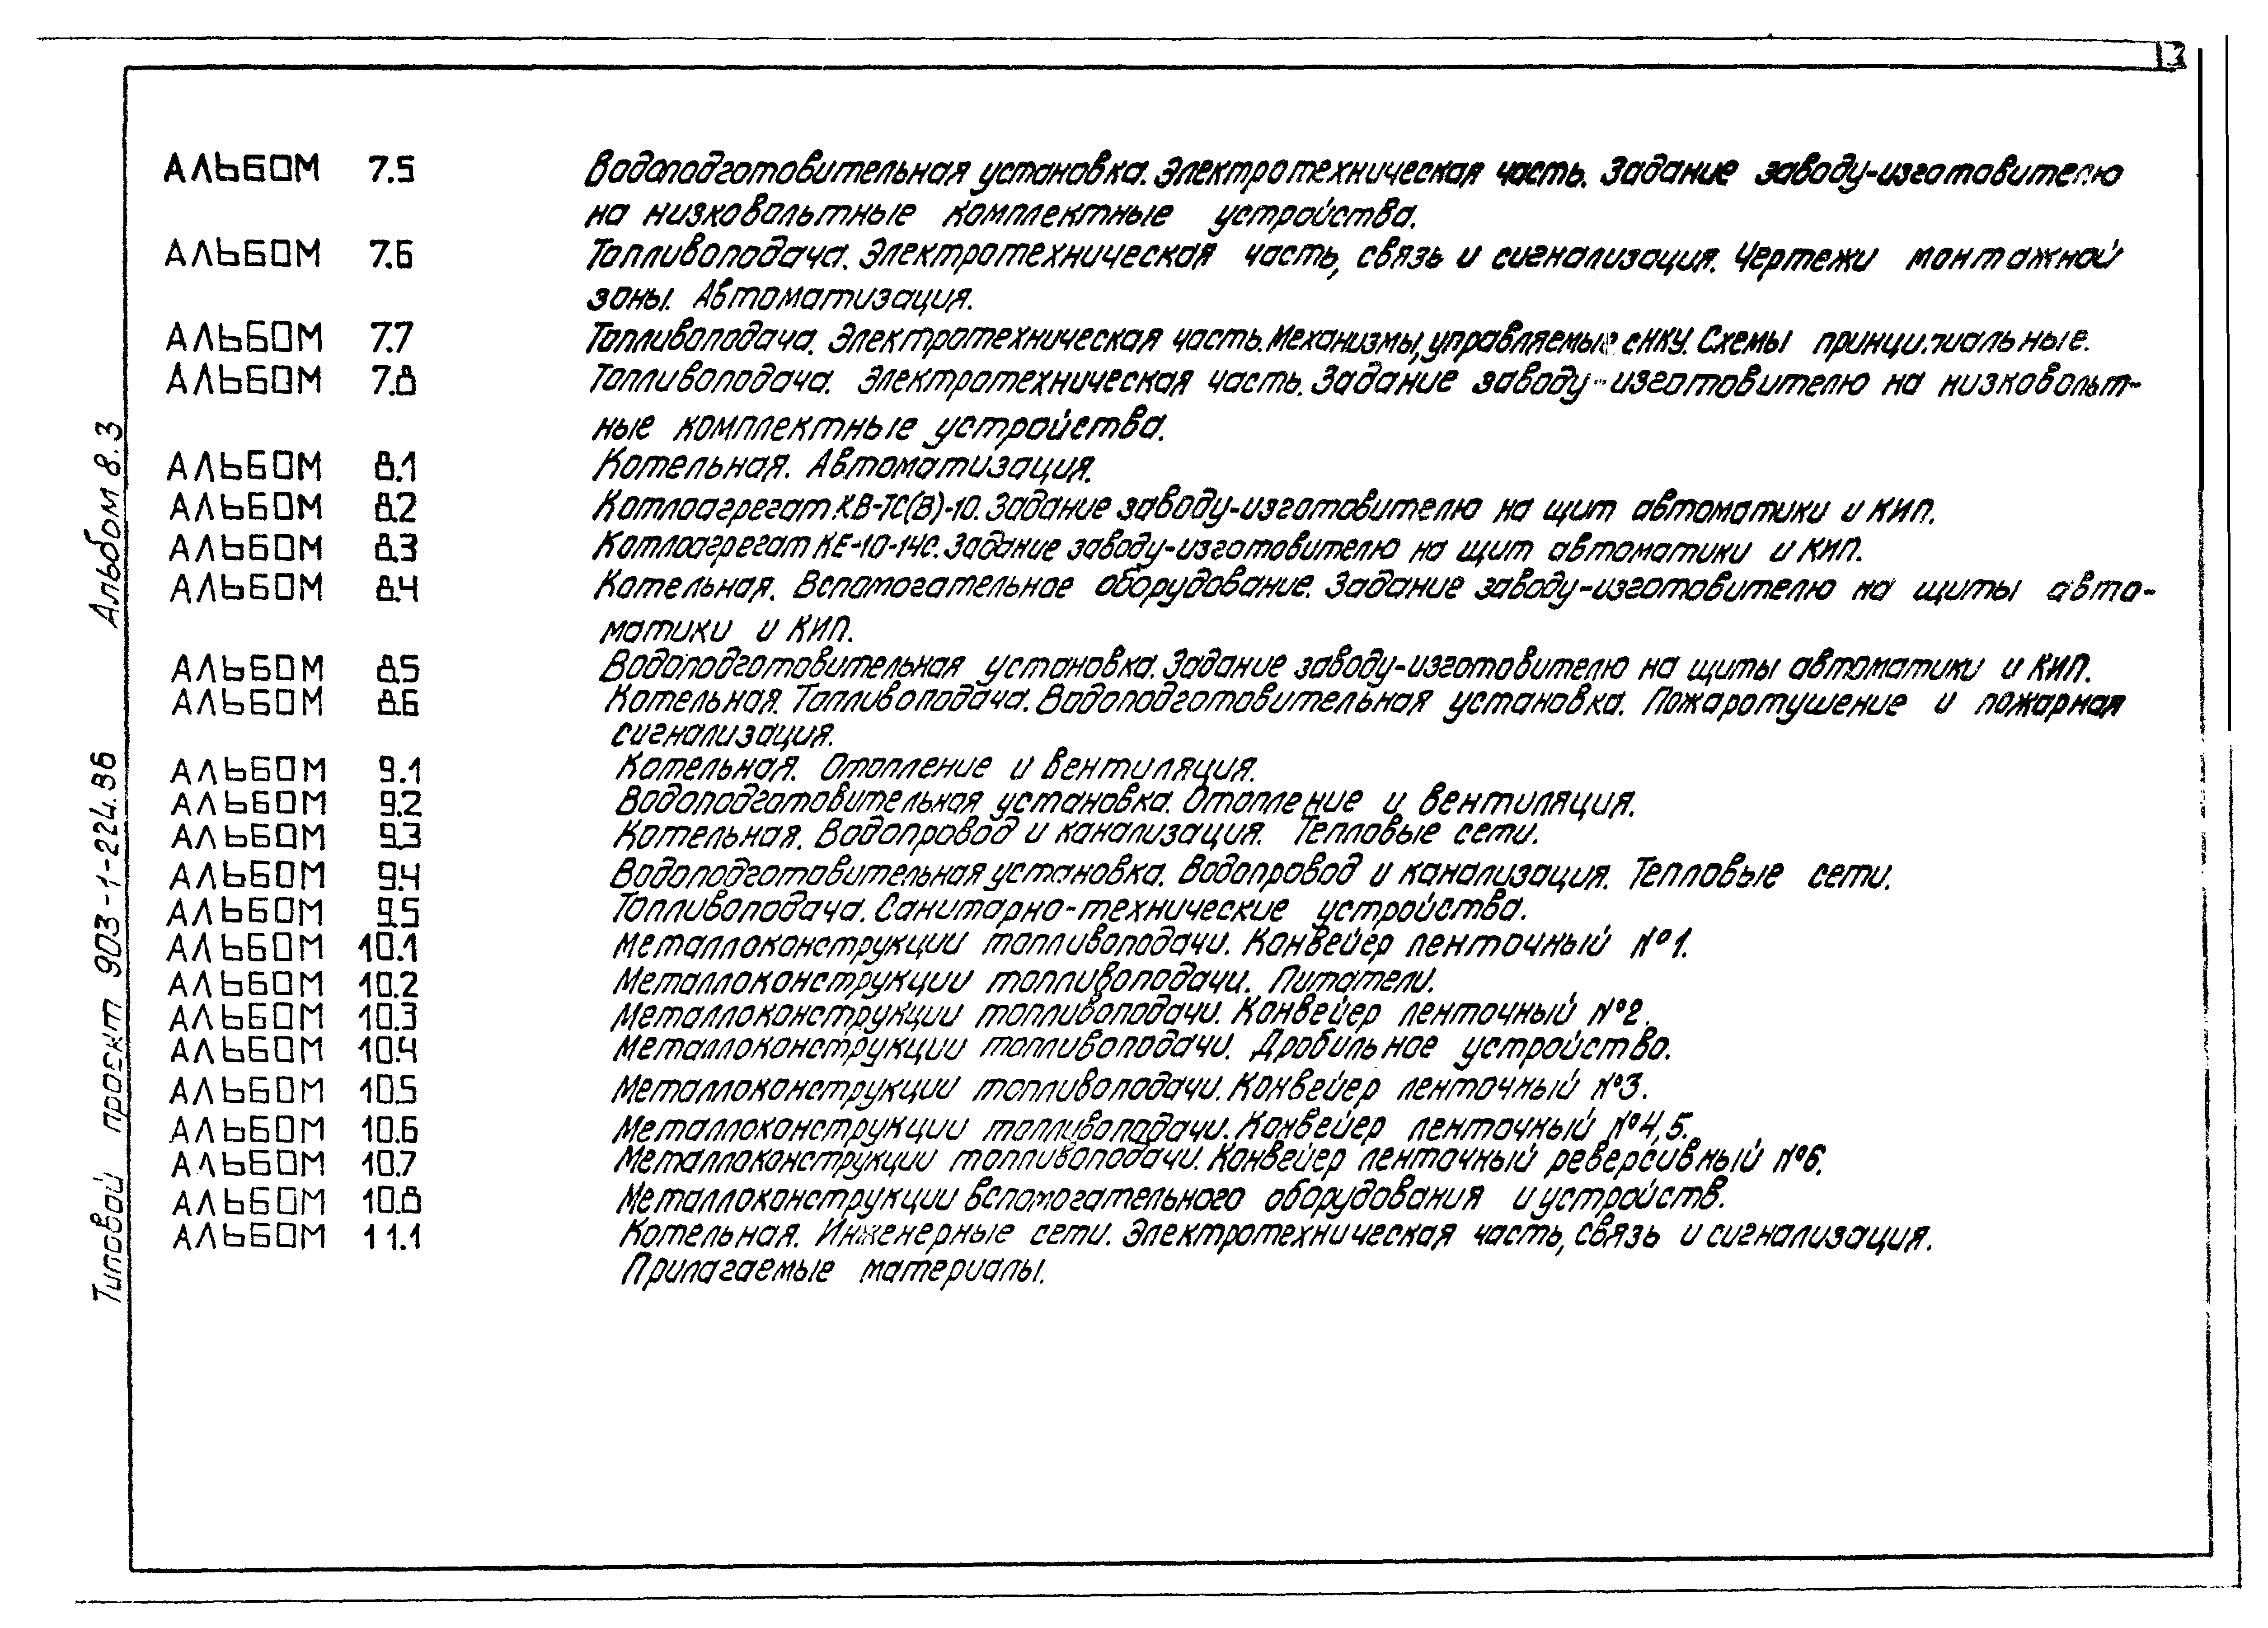 3
АЛЬБОМ 7.5 Водоподготовительная установка. Электротехническая часть. Задание заводу-изготовителю
на низковольтные комплектные устройства.
АЛЬБОМ 7.6 Топливоподача. Электротехническая часть, связь и сигнализация. Чертежи монтажной
зоны. Автоматизация.
АЛЬБОМ 7.7 Топливоподача. Электротехническая часть. Механизмы, управляемые с НКУ. Схемы принципиальные.
АЛЬБОМ 7.8 Топливоподача. Электротехническая часть. Задание заводу-изготовителю на низковольт-
ные комплектные устройства.
АЛЬБОМ 8.1 Котельная. Автоматизация.
АЛЬБОМ 8.2 Котлоагрегат КВ-ТС(В)-10. Задание заводу-изготовителю на щит автоматики и КИП.
АЛЬБОМ 8.3 Котлоагрегат КЕ-10-14С. Задание заводу-изготовителю на щит автоматики и КИП.
АЛЬБОМ 8.4 Котельная. Вспомогательное оборудование. Задание заводу-изготовителю на щиты авто-
матики и КИП.
АЛЬБОМ 8.5 Водоподготовительная установка. Задание заводу-изготовителю на щиты автоматики и КИП.
АЛЬБОМ 8.6 Котельная. Топливоподача. Водоподготовительная установка. Пожаротушение и пожарная
сигнализация.
АЛЬБОМ 9.1 Котельная. Отопление и вентиляция.
АЛЬБОМ 9.2 Водоподготовительная установка. Отопление и вентиляция.
АЛЬБОМ 9.3 Котельная. Водопровод и канализация. Тепловые сети.
АЛЬБОМ 9.4 Водоподготовительная установка. Водопровод и канализация. Тепловые сети.
АЛЬБОМ 9.5 Топливоподача. Санитарно-технические устройства.
АЛЬБОМ 10.1 Металлоконструкции топливоподачи. Конвейер ленточный №1.
АЛЬБОМ 10.2 Металлоконструкции топливоподачи. Питатели.
АЛЬБОМ 10.3 Металлоконструкции топливоподачи. Конвейер ленточный №2.
АЛЬБОМ 10.4 Металлоконструкции топливоподачи. Дробильное устройство.
АЛЬБОМ 10.5 Металлоконструкции топливоподачи. Конвейер ленточный №3.
АЛЬБОМ 10.6 Металлоконструкции топливоподачи. Конвейер ленточный №4,5.
АЛЬБОМ 10.7 Металлоконструкции топливоподачи. Конвейер ленточный реверсивный №6.
АЛЬБОМ 10.8 Металлоконструкции вспомогательного оборудования и устройств.
АЛЬБОМ 11.1 Котельная. Инженерные сети. Электротехническая часть, связь и сигнализация.
Прилагаемые материалы.
Типовой проект 903-1-224.86 Альбом 8.3